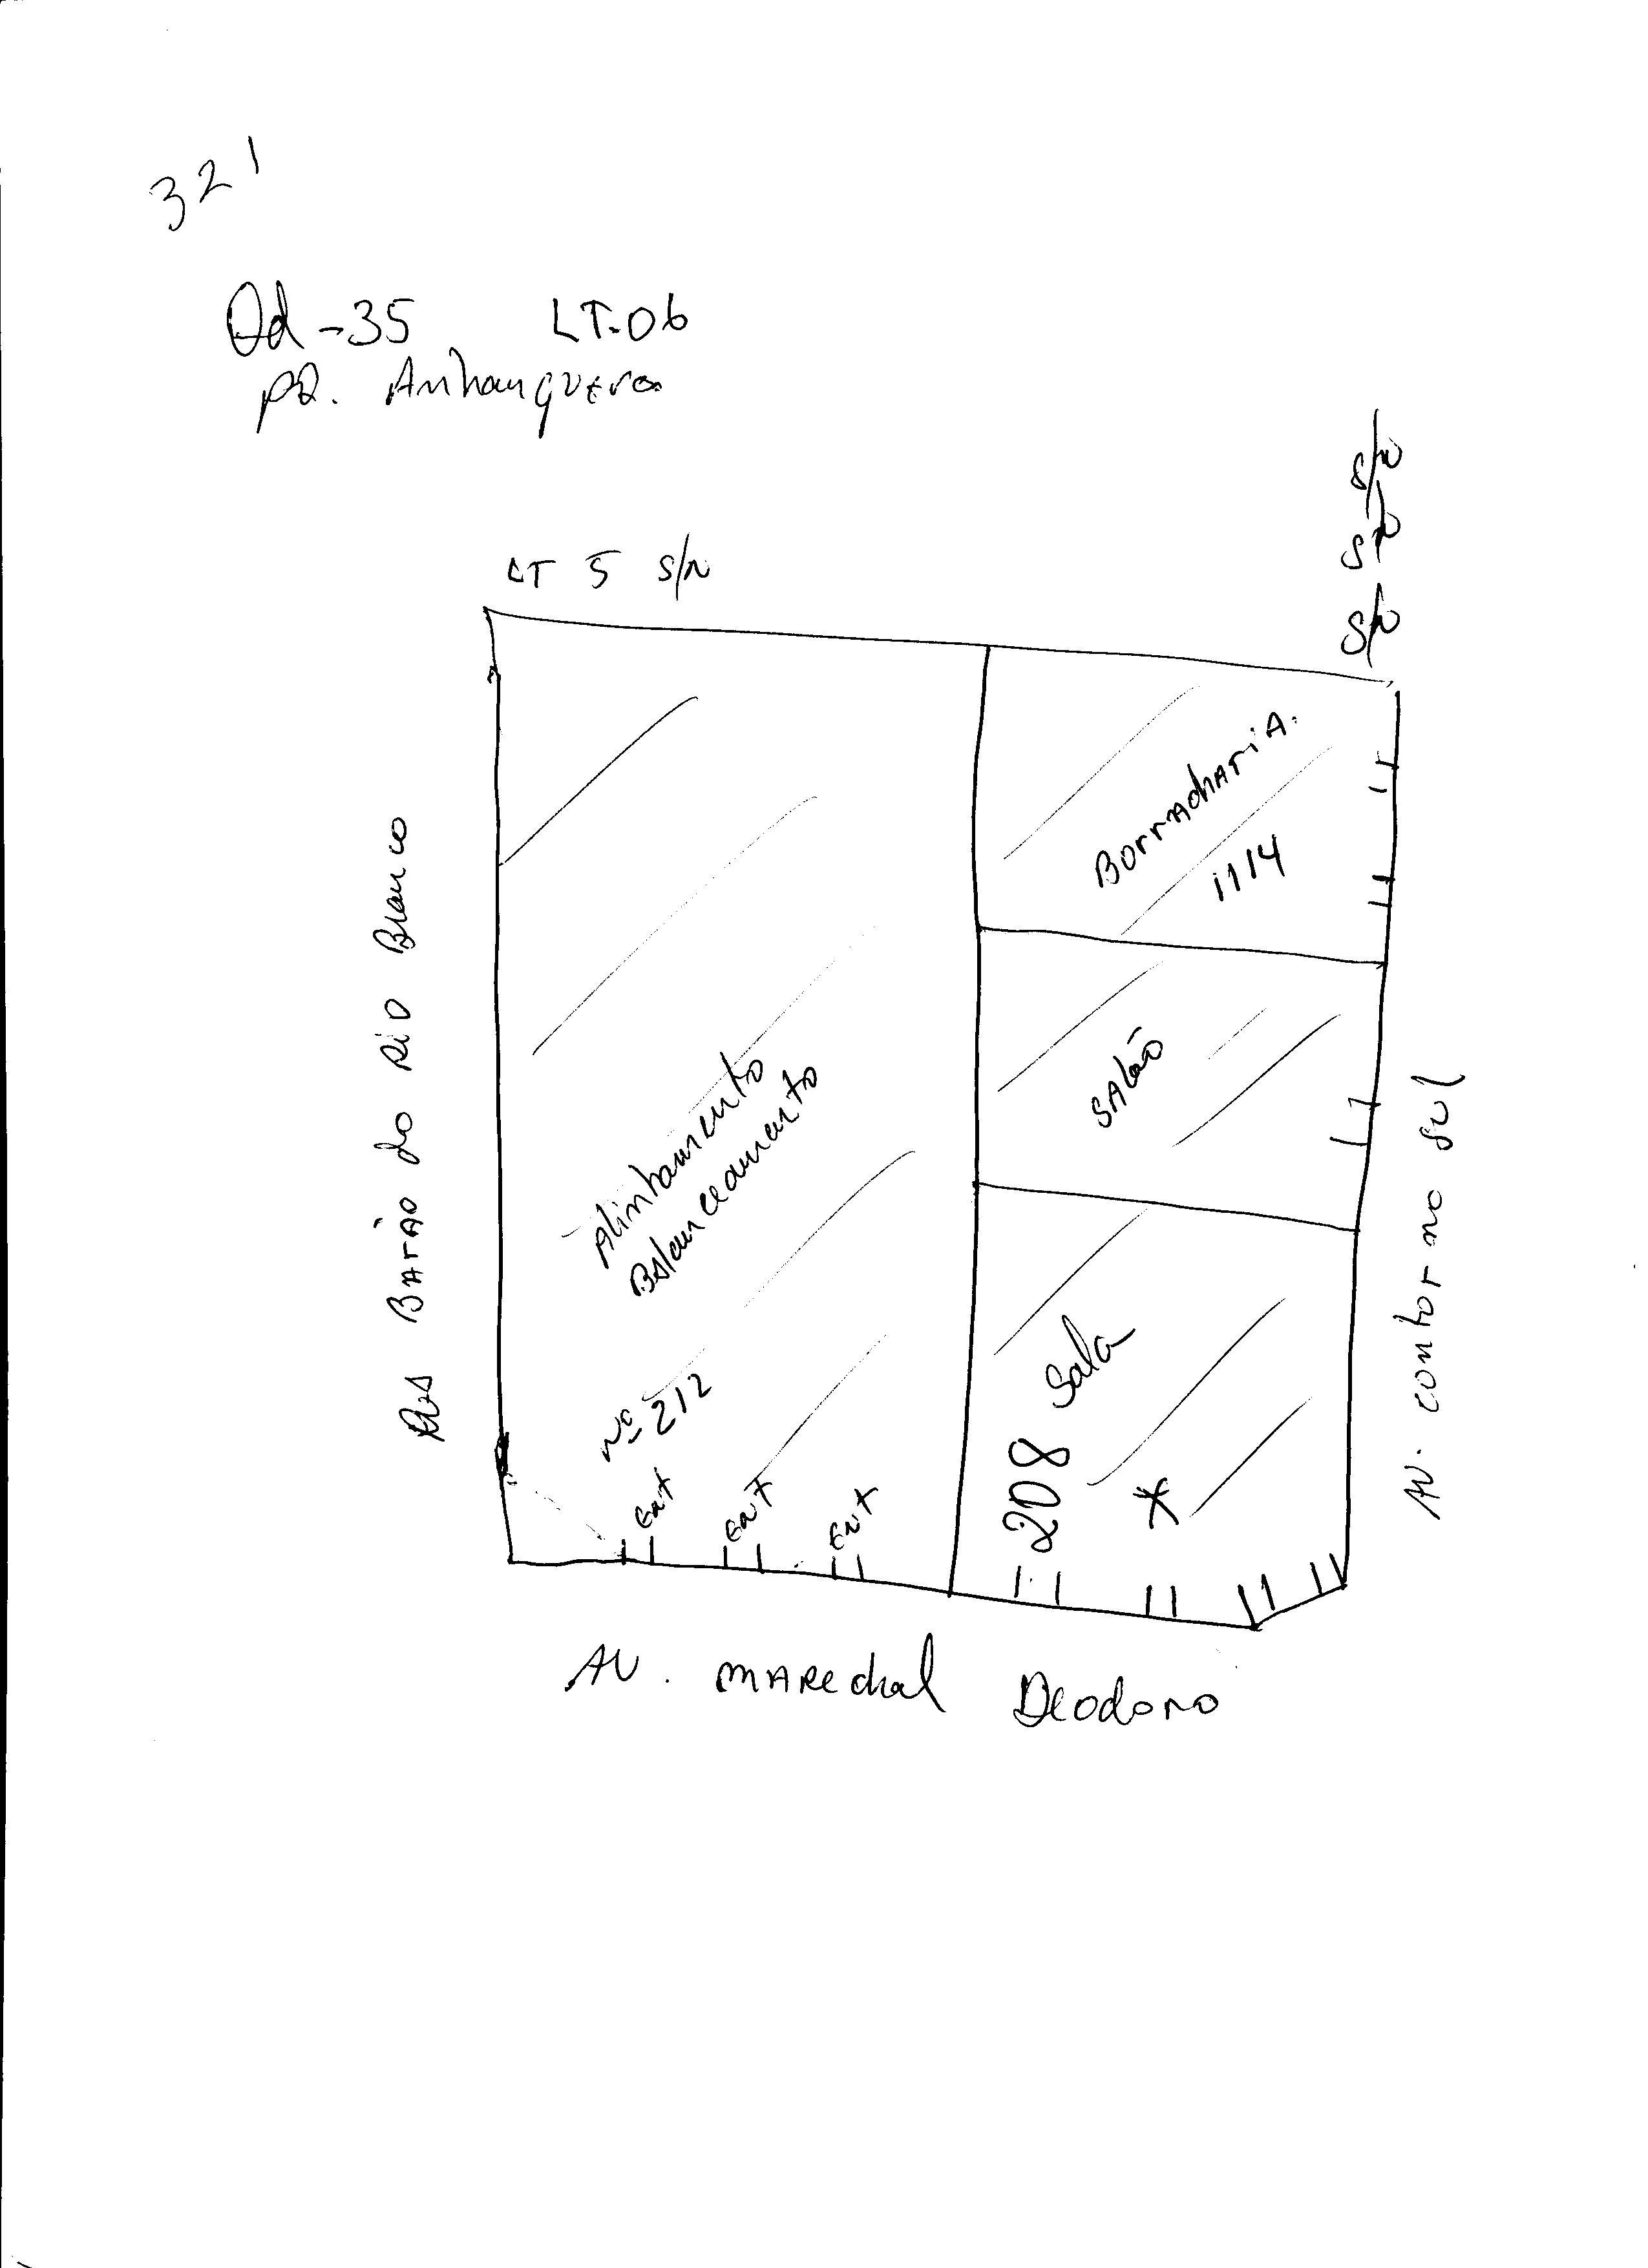 321
Qd-35 LT-06
PQ. Anhanguera
s/n
s/n
s/n
LT 5 s/n
Borracharia.
1114
Rua Barão do Rio Branco
Salão
Alinhamento
Balanceamento
Av. contorno sul
Sala
208
*
nº 212
Ent
Ent
Ent
Av. Marechal Deodoro